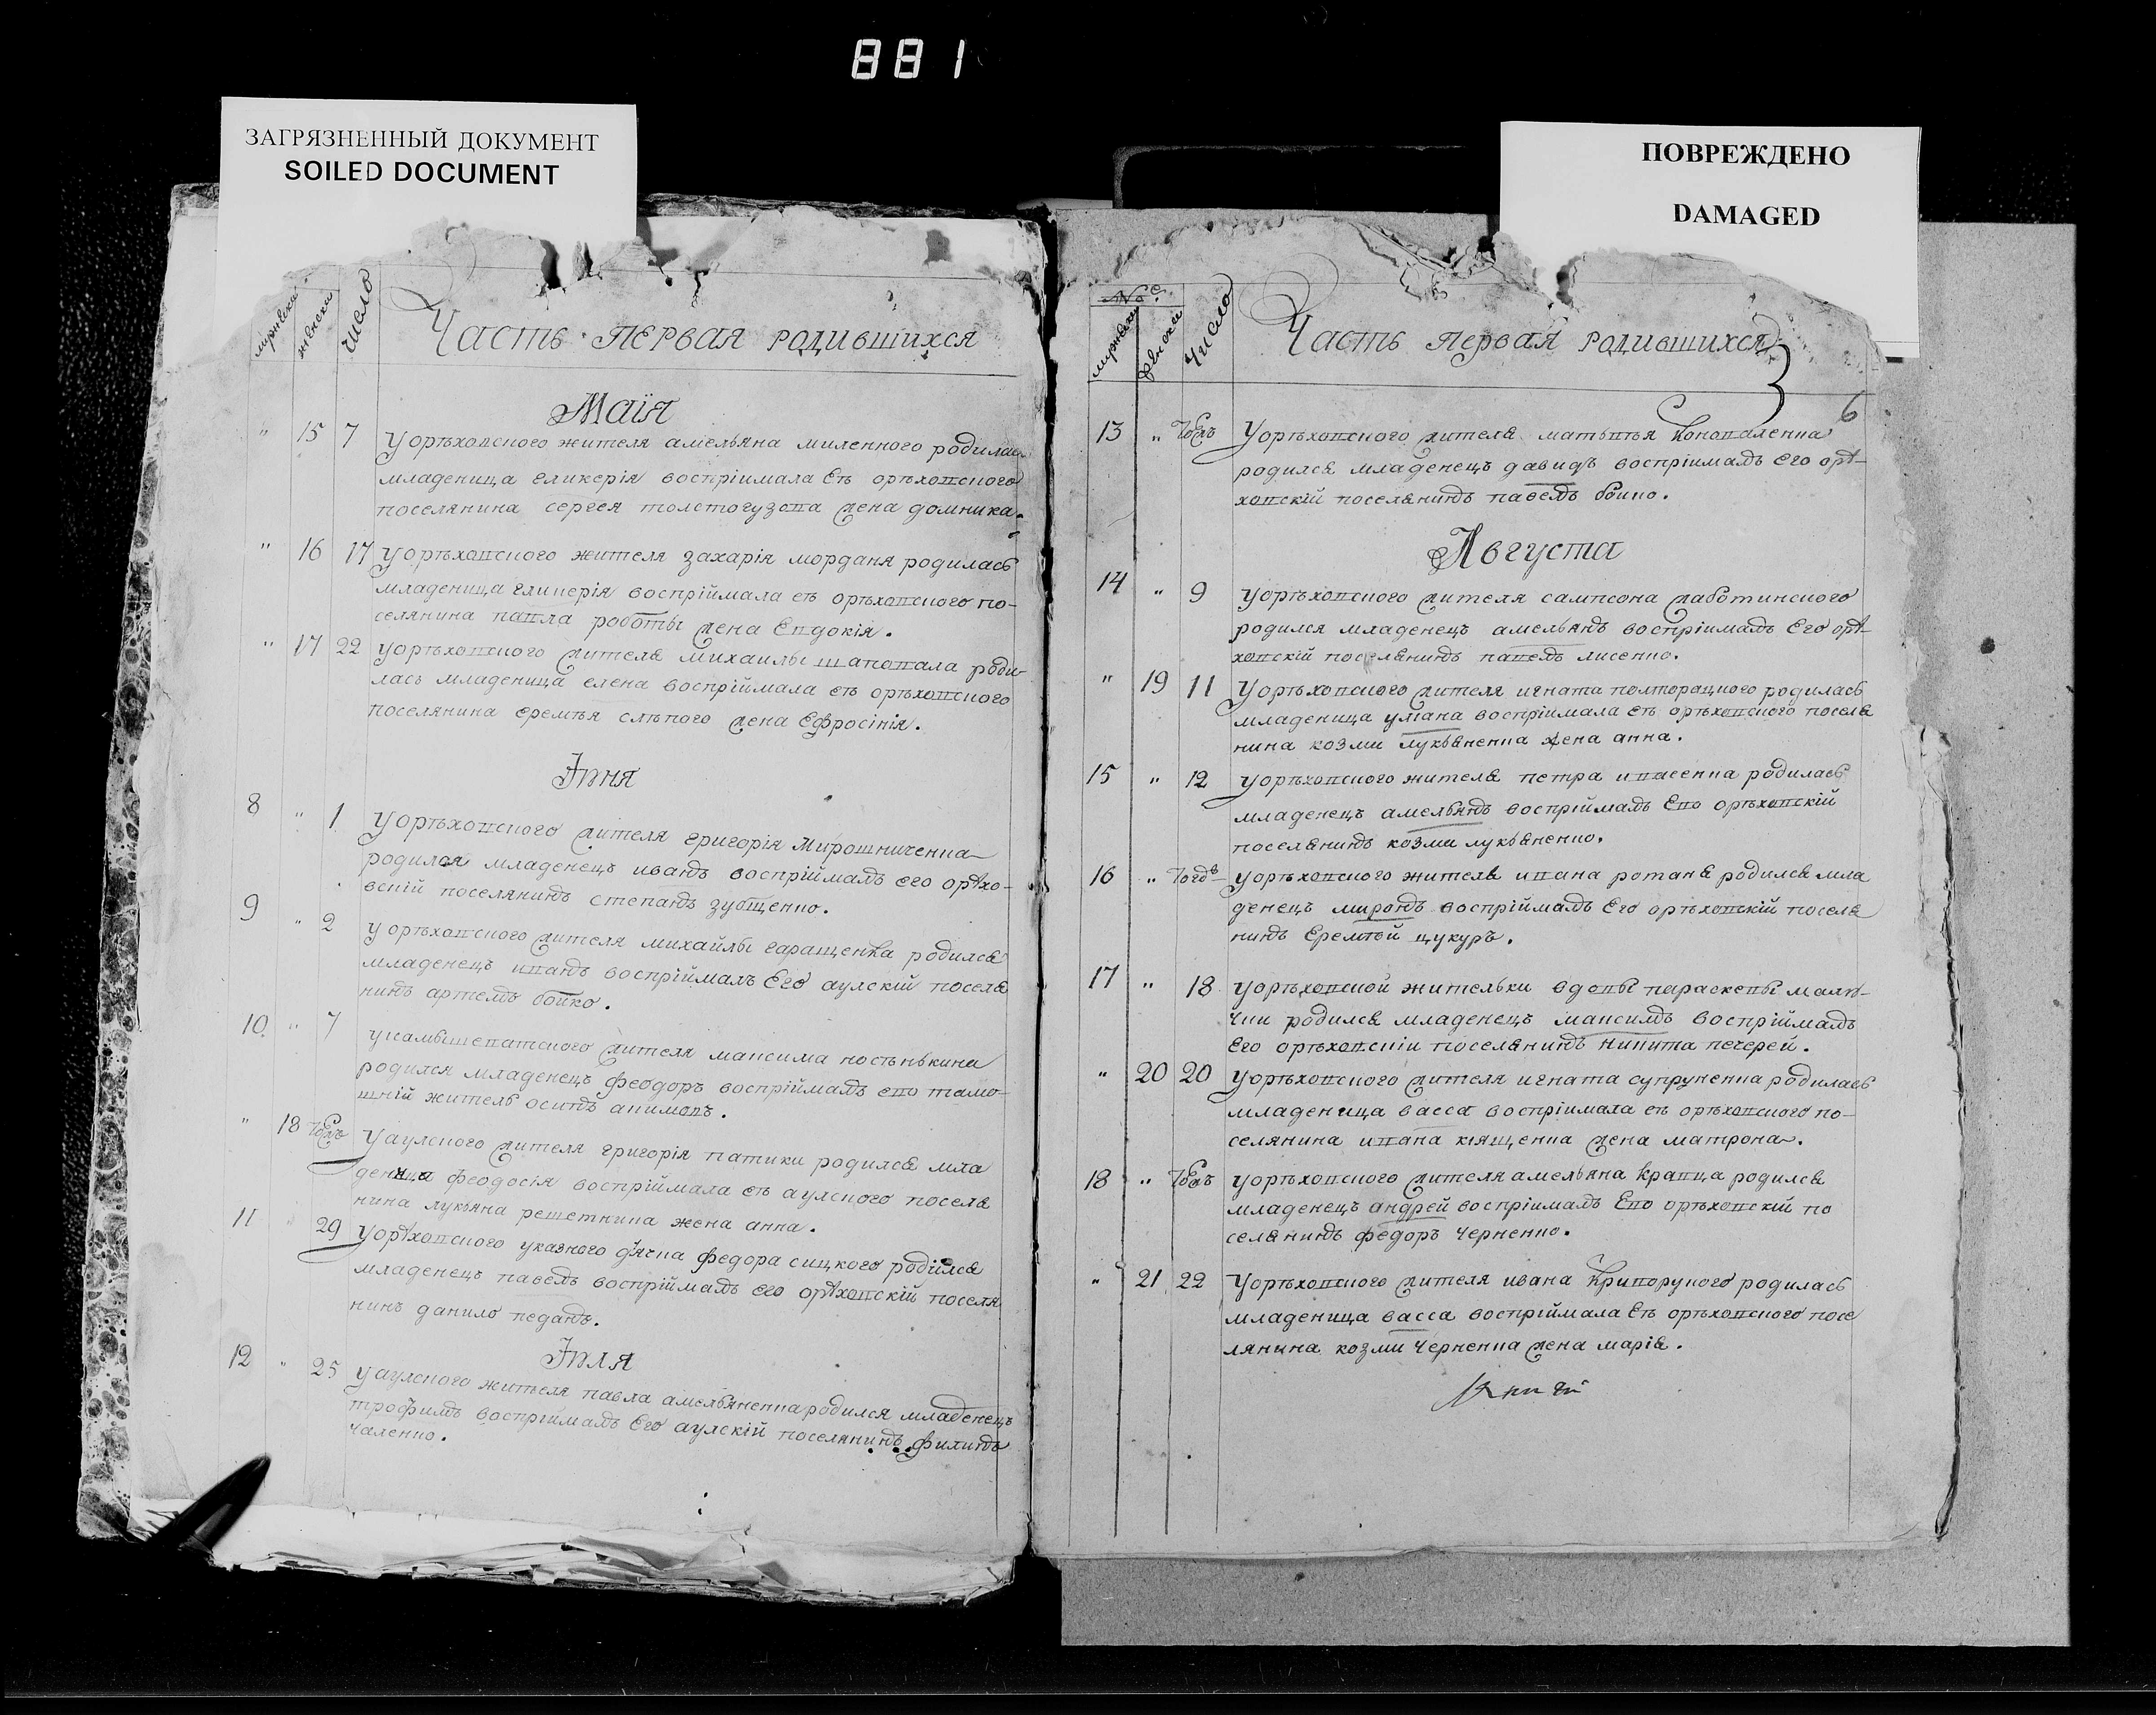 881
ЗАГРЯЗНЕННЫЙ ДОКУМЕНТ
SOILED DOCUMENT
ПОВРЕЖДЕНО
DAMAGED
мужеска женска число
Часть первая родившихся
Маія
" 15 7 Уорѣховского жителя амельяна миленного родилась
младеница гликерія воспріимала Еѣ орѣховского
поселянина сергея толстогузова жена домника.
" 16 17 Уорѣховского жителя захарія морданя родилась
младеница гликерія воспріймала еѣ орѣховского по-
селянина павла роботы жена Евдокія.
" 17 22 Уорѣховского жителя михаилы шаповала роди-
лась младеница елена воспріймала еѣ орѣховского
поселянина еремѣя слѣпого жена Ефросінія.
Іюня
8 " 1 Уорѣховского жителя григорія Мирошниченка
родился младенецъ иванъ воспріймалъ его орѣхо-
вскій поселянинъ степанъ зубщенко.
9 " 2 у орѣховского жителя михайлы гаращенка родился
младенецъ иванъ воспріймалъ Его аулскій поселя
нинъ артемъ бойко.
10 " 7 укамышеватского жителя максима
родился младенецъ феодоръ воспріймалъ его тамо-
шній житель осипъ акимовъ.
" 18 Уаулского жителя григорія патики родился мла
деница феодосія воспріймала еѣ аулского поселя
нина лукьяна решеткина жена анна.
11 29 Уорѣховского указного дячка федора сицкого родился
младенецъ павелъ воспріймалъ его орѣховскій поселя
нинъ данило педанъ.
Іюля
12 " 25 Уаулского жителя павла амельяненка родился младенецъ
трофимъ воспріималъ Его аулскій поселянинъ филипъ
чаленко.
№е
мужеска женска число
Часть первая родившихся
3
6
13 " Уорѣховского жителя матвѣя Коноваленка
родился младенецъ давидъ воспріималъ его орѣ-
ховскій поселянинъ павелъ бойко.
Августа
14 " 9 Уорѣховского жителя сампсона жаботинского
родился младенецъ амельянъ воспріималъ Его орѣ-
ховскій поселянинъ павелъ лисенко.
" 19 11 Уорѣховского жителя игната полторацкого родилась
младеница уліана воспріимала еѣ орѣховского поселя
нина козми лукьяненка жена анна.
15 " 12 Уорѣховского жителя петра ивасенка родилась
младенецъ амельянъ воспріймалъ Его орѣховскій
поселянинъ козми лукьяненко.
16 " Уорѣховского жителя ивана ротаня родился мла
денецъ миронъ воспріймалъ Его орѣховскій поселя
нинъ Еремѣй цукуръ.
17 " 18 Уорѣховской жительки вдовы параскевы малѣ-
чки родился младенецъ максимъ воспріймалъ
Его орѣховскій поселянинъ никита печерей.
" 20 20 Уорѣховского жителя игната супруненка родилась
младеница васса воспріимала еѣ орѣховского по-
селянина ивана кіященка жена матрона.
18 " Уорѣховского жителя амельяна кравца родился
младенецъ андрей воспріималъ Его орѣховскій по
селянинъ федоръ черненко.
" 21 22 Уорѣховского жителя ивана Криворукого родилась
младеница васса воспріймала Еѣ орѣховского посе
лянина козми черненка жена марія.